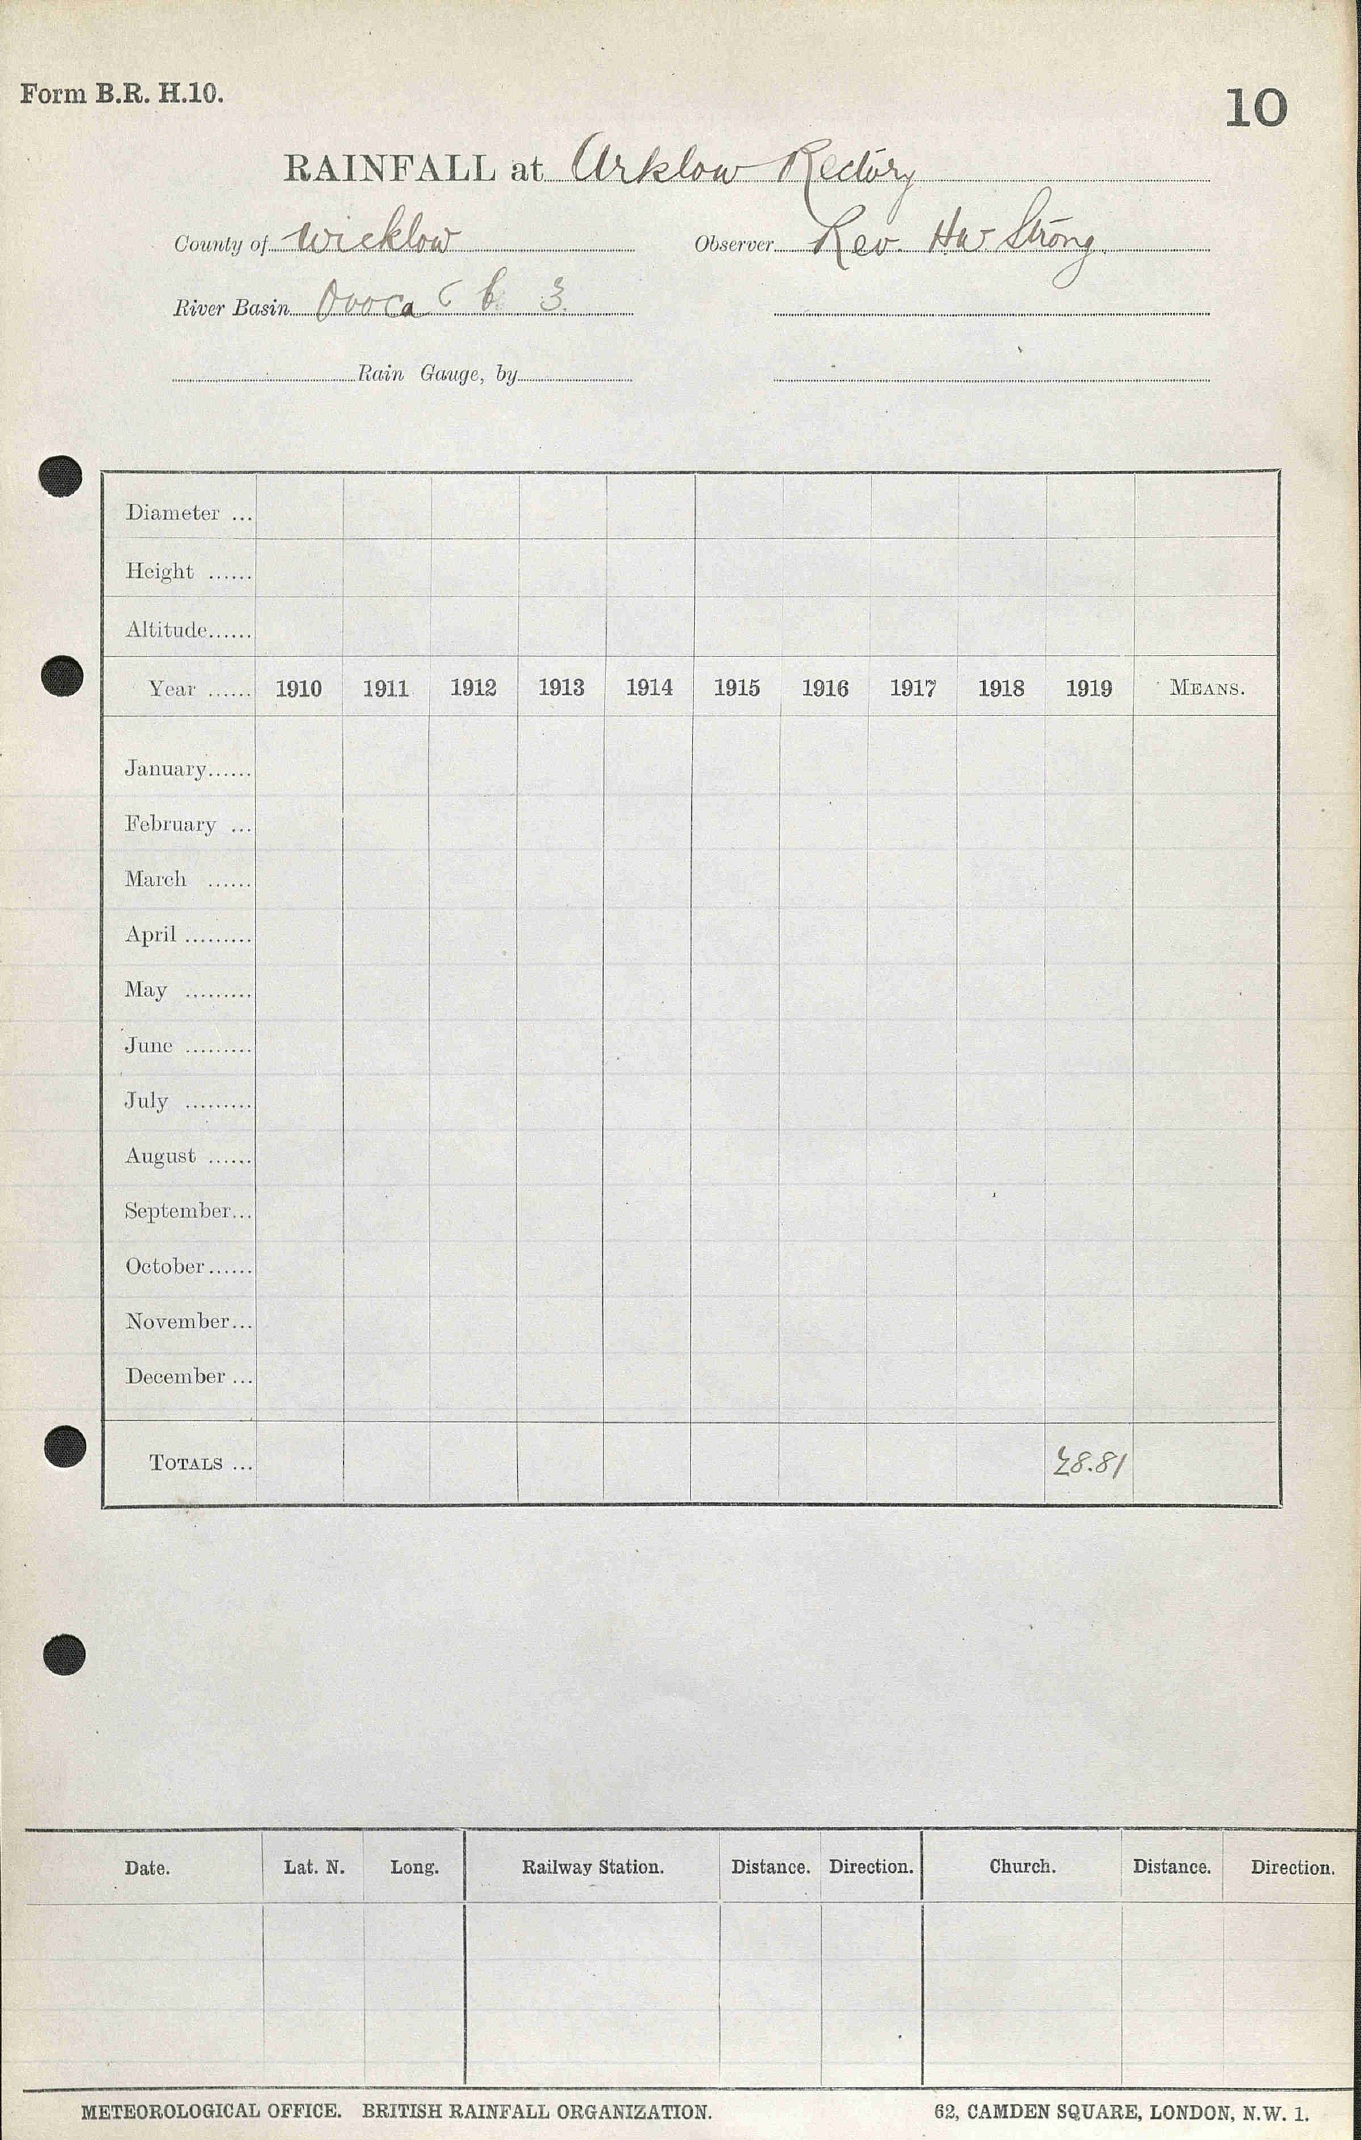 Form B.R. H.10.
10
RAINFALL at Arklow Rectory
County of Wicklow Observer Rev. HW Strong
River Basin Ovoca 3
Rain Gauge, by
Diameter ...
Height ......
Altitude......
Year ...... 1910 1911 1912 1913 1914 1915 1916 1917 1918 1919 MEANS.
January......
February ...
March ......
April .........
May .........
June .........
July .........
August ......
September...
October......
November...
December ...
TOTALS ... 28.81
Date. Lat. N. Long. Railway Station. Distance. Direction. Church. Distance. Direction.
METEOROLOGICAL OFFICE. BRITISH RAINFALL ORGANIZATION. 62, CAMDEN SQUARE, LONDON, N.W. 1.